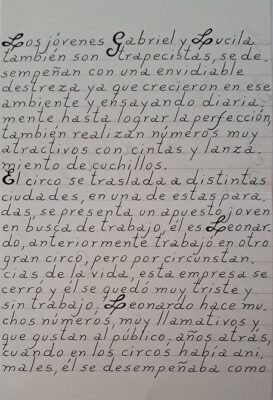 Los jóvenes Gabriel y Lucila
también son trapecistas, se de.
sempeñan con una envidiable
destreza ya que crecieron en ese
ambiente y ensayando diaria,
mente hasta lograr la perfección,
también realizan números muy
atractivos con cintas y lanza.
miento de cuchillos.
El circo se traslada a distintas
ciudades, en una de estas para.
das, se presenta un apuesto joven
en busca de trabajo, él es Leonar.
do, anteriormente trabajó en otro
gran circo, pero por circunstan.
cias de la vida, esta empresa se
cerró y él se quedó muy triste y
sin trabajo. Leonardo hace mu.
chos números, muy llamativos y
que gustan al público, años atrás,
cuando en los circos había ani.
males, él se desempeñaba como